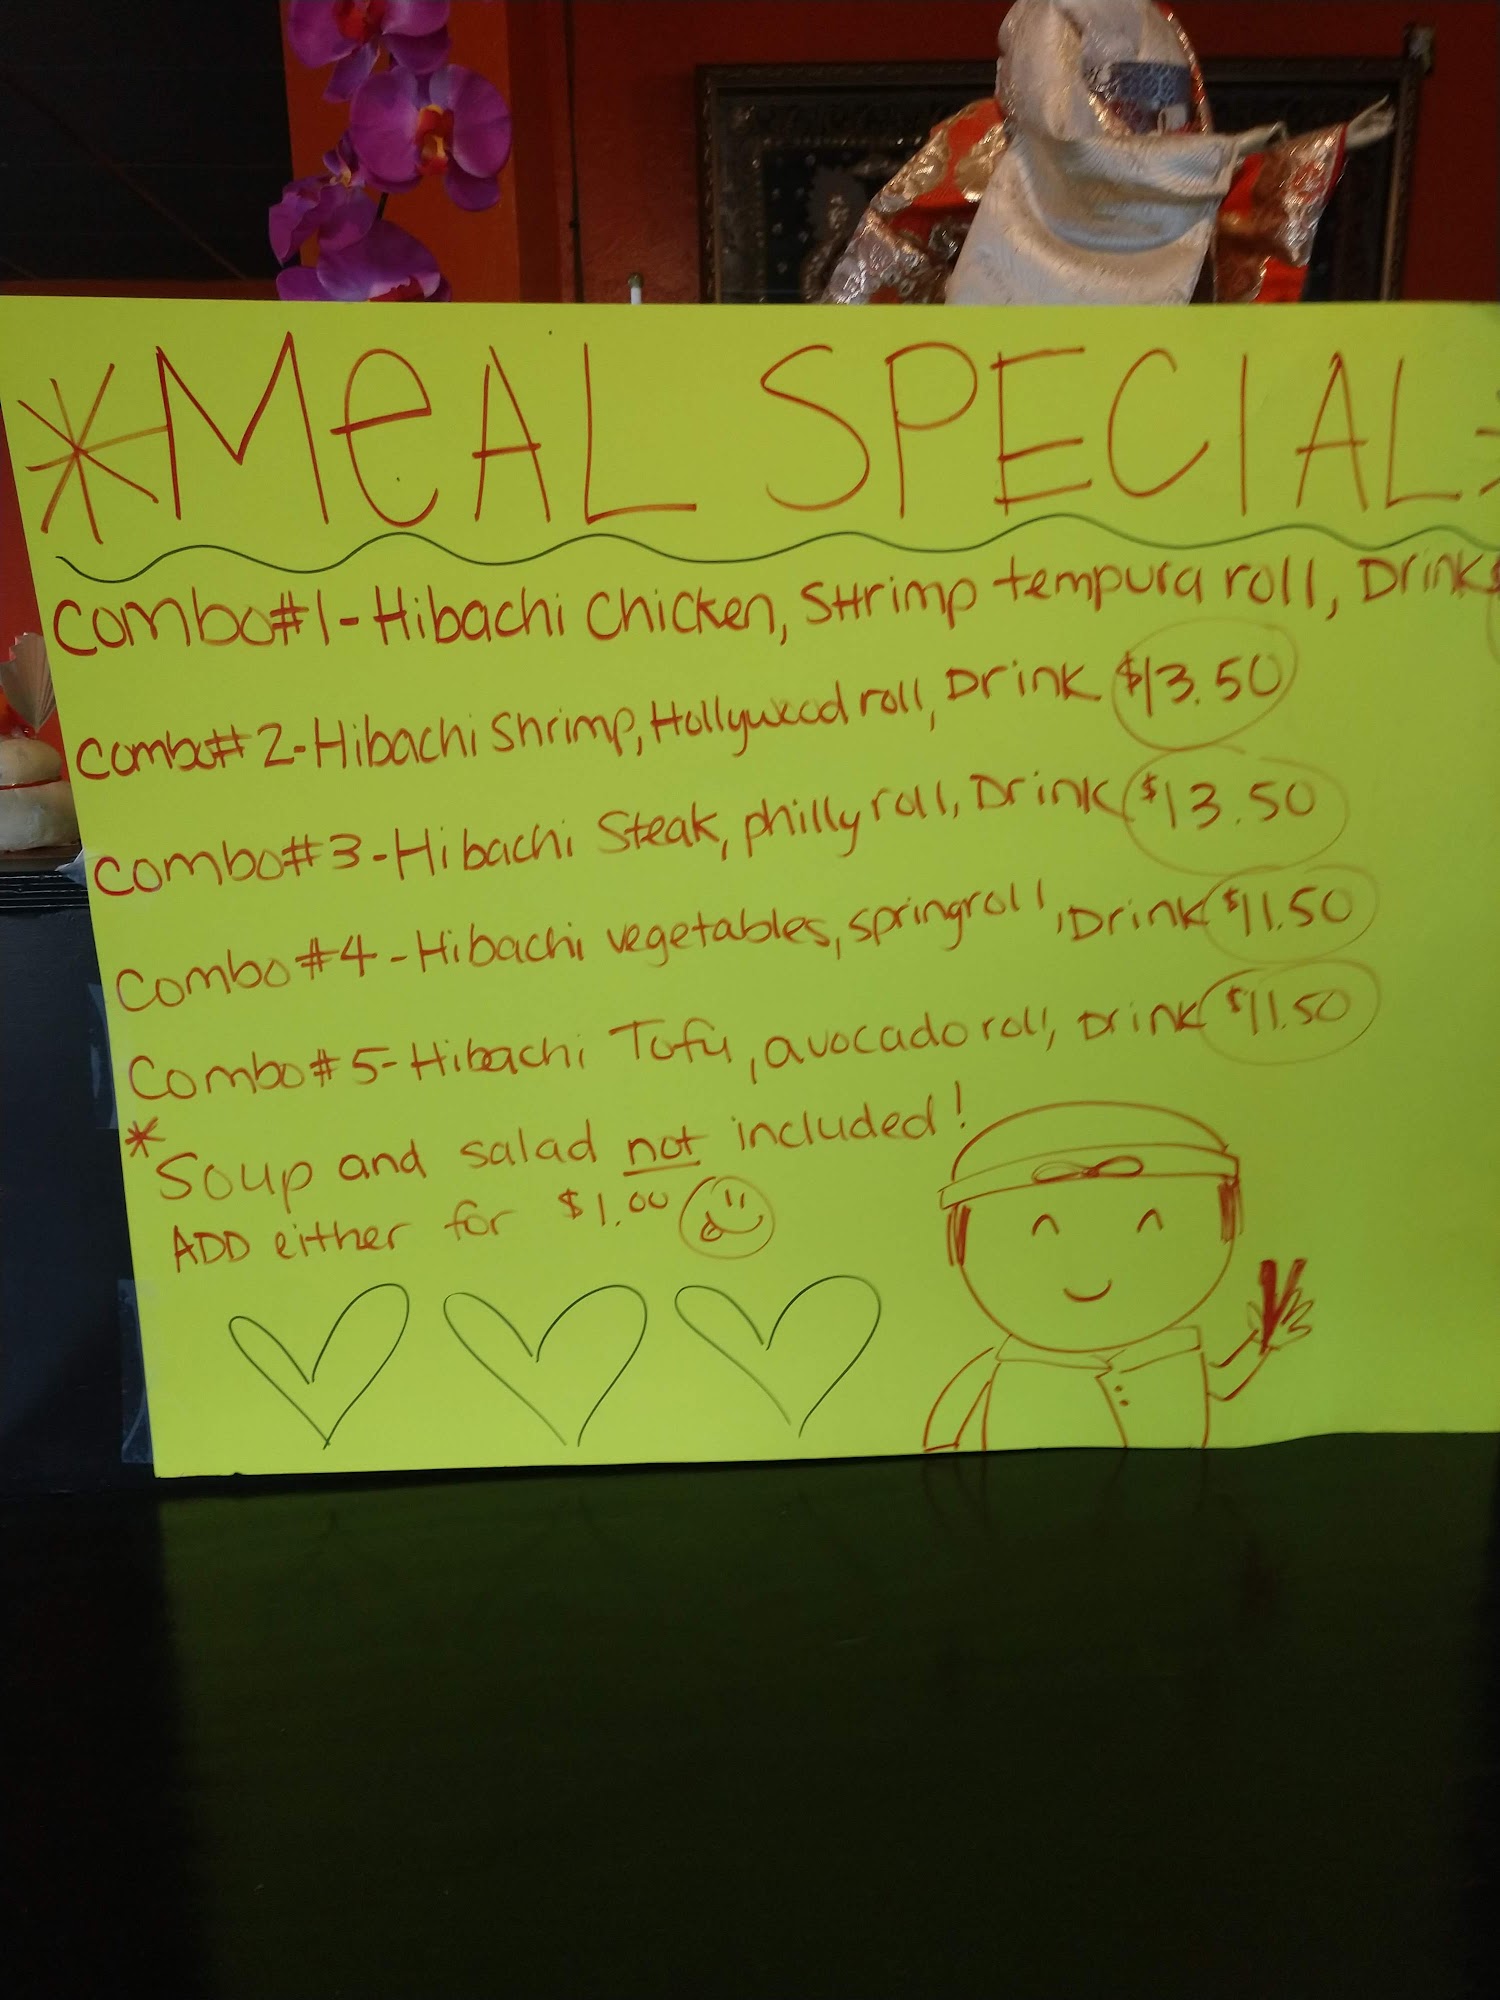 *MeAL SPECIAL*
Combo#1-Hibachi Chicken, Shrimp tempura roll, Drink
Combo#2-Hibachi Shrimp, Hollywood roll, Drink $13.50
Combo#3-Hibachi Steak, philly roll, Drink $13.50
Combo#4-Hibachi vegetables, springroll, Drink $11.50
Combo#5-Hibachi Tofu, avocado roll, Drink $11.50
*Soup and salad not included!
ADD either for $1.00